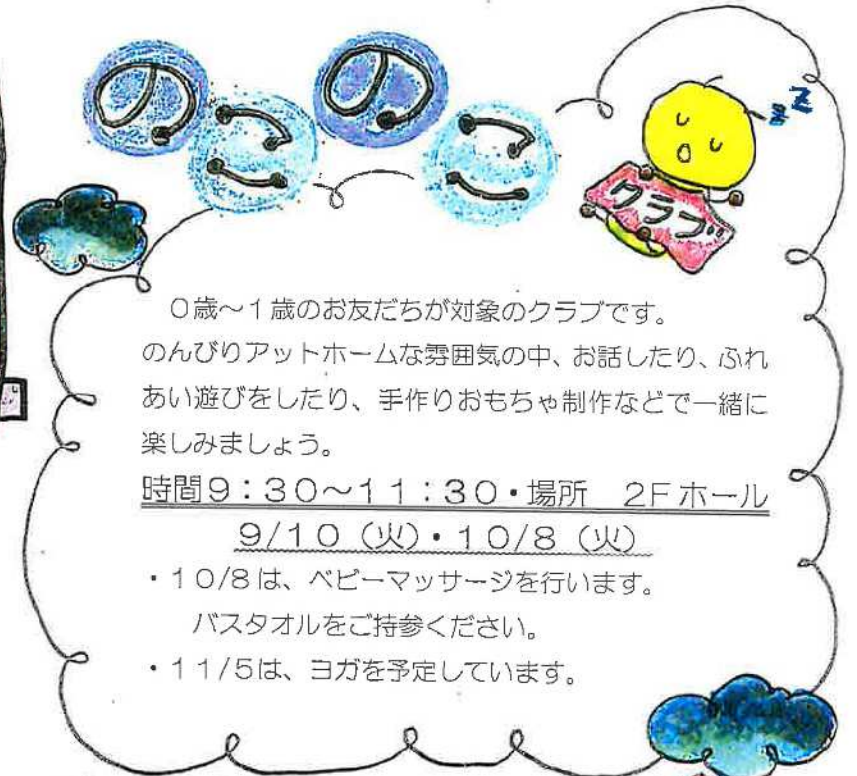 のこのこ
クラブ
zzZ
0歳～1歳のお友だちが対象のクラブです。
のんびりアットホームな雰囲気の中、お話したり、ふれ
あい遊びをしたり、手作りおもちゃ制作などで一緒に
楽しみましょう。
時間9:30～11:30・場所　2Fホール
9/10（火）・10/8（火）
・10/8は、ベビーマッサージを行います。
バスタオルをご持参ください。
・11/5は、ヨガを予定しています。